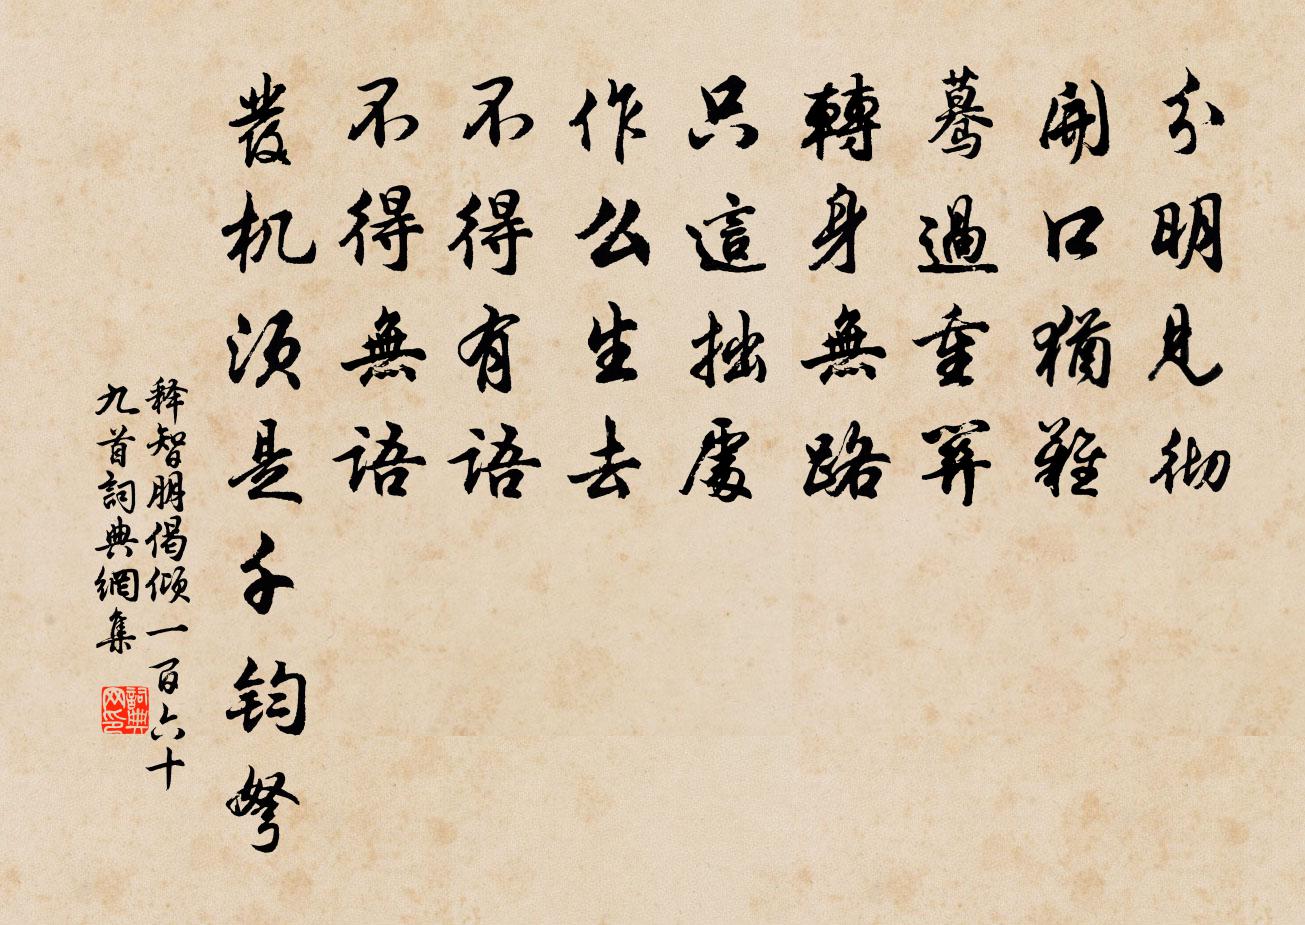 分明見彻
開口猶難
驀過重關
轉身無路
只這拙處
作么生去
不得有語
不得無語
發机須是千鈞弩
释智朋偈倾一百六十
九首詞典網集
詞典网印